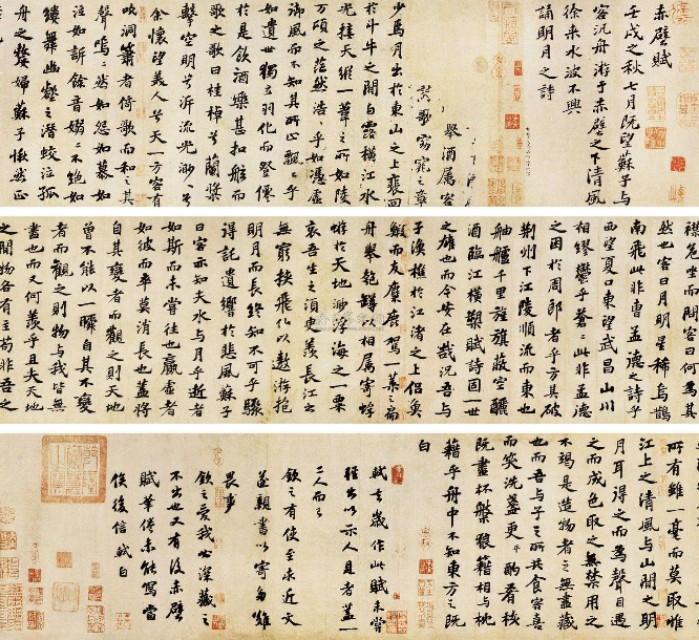 赤壁賦
壬戌之秋七月既望蘇子與
客汎舟游于赤壁之下清風
徐來水波不興
誦明月之詩
舉酒屬客
歌窈窕之章
少焉月出於東山之上裵回
於斗牛之間白露橫江水
光接天縱一葦之所如陵
万頃之茫然浩〻乎如馮虛
御風而不知其所止飄〻乎
如遺世獨立羽化而登僊
於是飲酒樂甚扣舷而
歌之歌曰桂棹兮蘭槳
擊空明兮泝流光渺〻兮
余懷望美人兮天一方客有
吹洞簫者倚歌而和之其
聲嗚〻然如怨如慕如
泣如訴餘音嫋〻不絕如
縷舞幽壑之潛蛟泣孤
舟之嫠婦蘇子愀然正
襟危坐而問客曰何為其
然也客曰月明星稀烏鵲
南飛此非曹孟德之詩乎
西望夏口東望武昌山川
相繆鬱乎蒼〻此非孟德
之困於周郎者乎方其破
荊州下江陵順流而東也
舳艫千里旌旗蔽空釃
酒臨江橫槊賦詩固一世
之雄也而今安在哉況吾與
子漁樵於江渚之上侶魚
鰕而友麋鹿駕一葉之扁
舟舉匏罇以相屬寄蜉
蝣於天地渺浮海之一粟
哀吾生之須臾羨長江之
無窮挾飛仙以遨游抱
明月而長終知不可乎驟
得託遺響於悲風蘇子
曰客亦知夫水與月乎逝者
如斯而未嘗往也贏虛者
如彼而卒莫消長也蓋將
自其變者而觀之則天地
曾不能以一瞬自其不變
者而觀之則物與我皆無
盡也而又何羨乎且夫天地
之間物各有主苟非吾之
所有雖一毫而莫取惟
江上之清風與山間之明
月耳得之而為聲目遇
之而成色取之無禁用之
不竭是造物者之無盡藏
也而吾與子之所共食客喜
而笑洗盞更酌肴核
既盡杯槃狼籍相與枕
藉乎舟中不知東方之既
白
軾去歲作此賦未嘗
輕出以示人見者蓋一
二人而已
欽之有使至求近文
遂親書以寄多難
畏事
欽之愛我必深藏之
不出也又有後赤壁
賦筆倦未能寫當
俟後信軾白